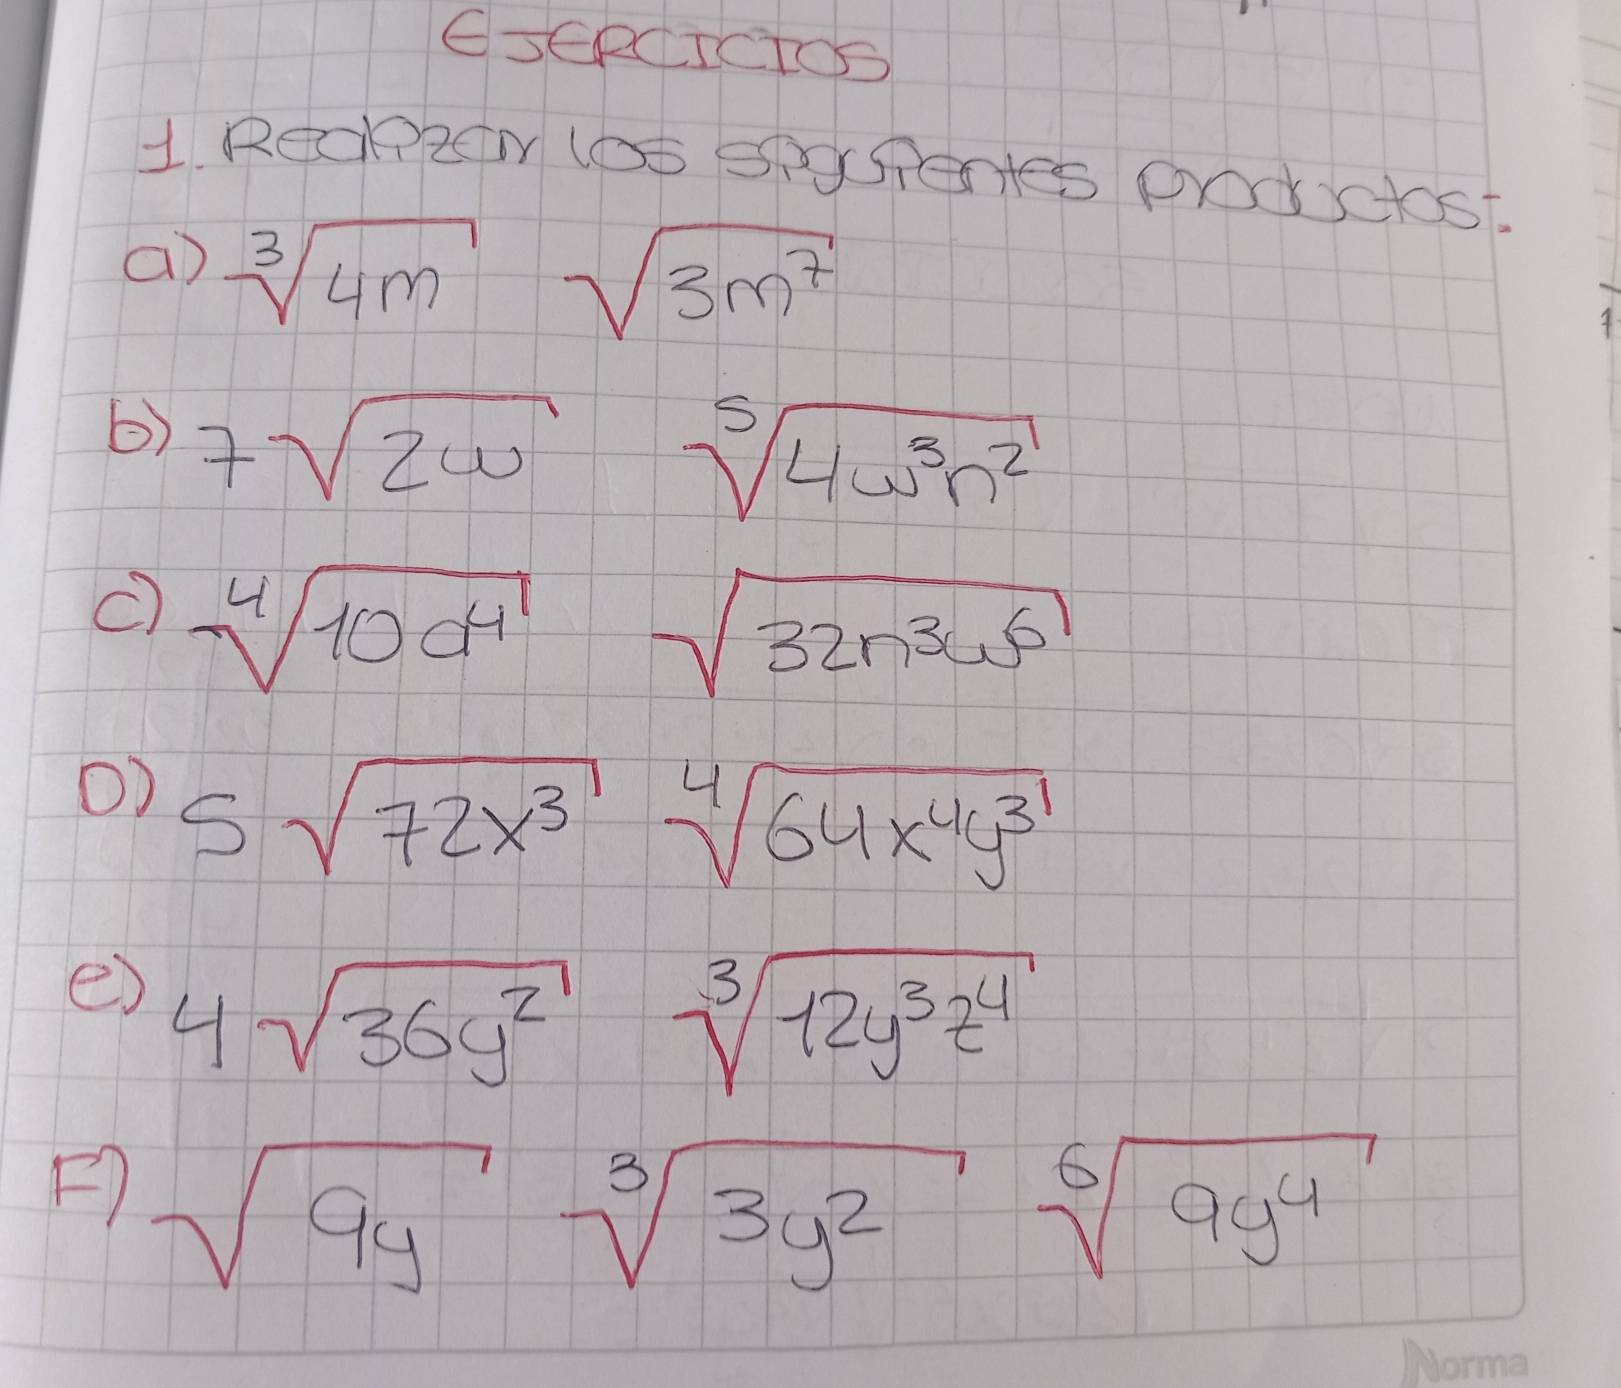 EJERCICIOS
1. Realizar los siguientes productos:
a) ∛(4m) √(3m⁷)
b) 7√(2w) ⁵√(4w³n²)
c) ⁴√(10a⁴) √(32n³w⁶)
D) 5√(72x³) ⁴√(64x⁴y³)
e) 4√(36y²) ∛(12y³z⁴)
F) √(9y) ∛(3y²) ⁶√(9y⁴)
Norma